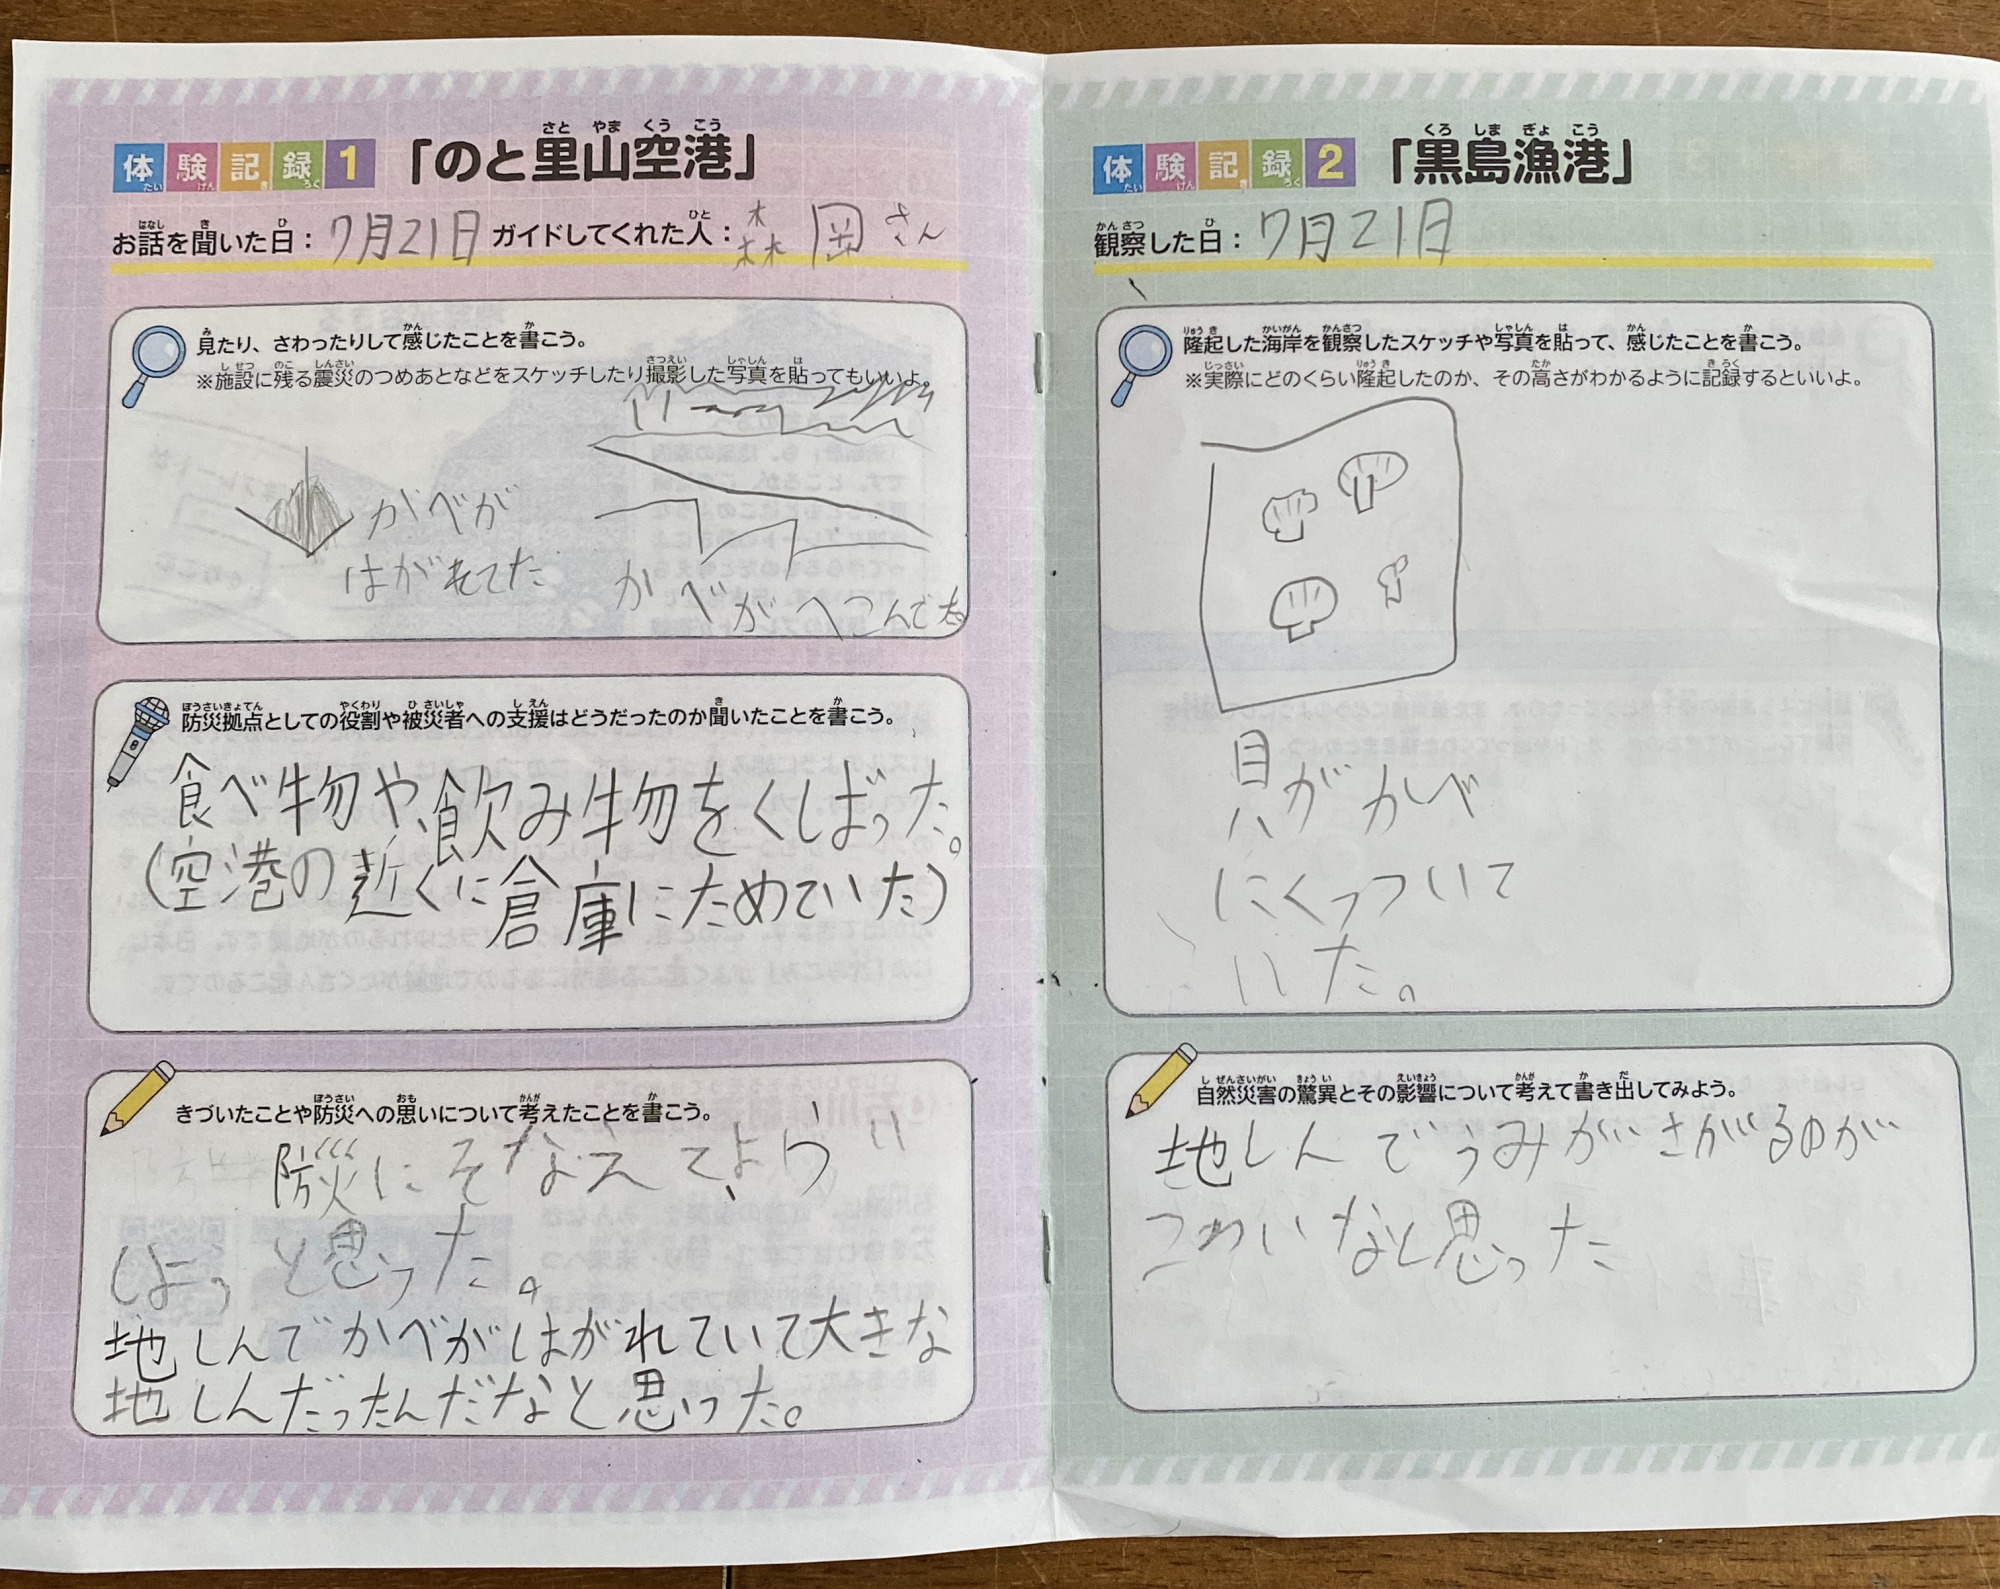 体験記録1「のと里山空港」
お話を聞いた日：7月21日 ガイドしてくれた人：森岡さん
見たり、さわったりして感じたことを書こう。
※施設に残る震災のつめあとなどをスケッチしたり撮影した写真を貼ってもいいよ。
かべが
はがれてた
かべがへこんでた
防災拠点としての役割や被災者への支援はどうだったのか聞いたことを書こう。
食べ物や、飲み物をくばった。
(空港の近くに倉庫にためていた)
きづいたことや防災への思いについて考えたことを書こう。
防災にそなえて、
と思った。
地しんでかべがはがれていて大きな
地しんだったんだなと思った。
体験記録2「黒島漁港」
観察した日：7月21日
隆起した海岸を観察したスケッチや写真を貼って、感じたことを書こう。
※実際にどのくらい隆起したのか、その高さがわかるように記録するといいよ。
貝がかべ
にくっついて
いた。
自然災害の驚異とその影響について考えて書き出してみよう。
地しんでうみがさがるのが
こわいなと思った